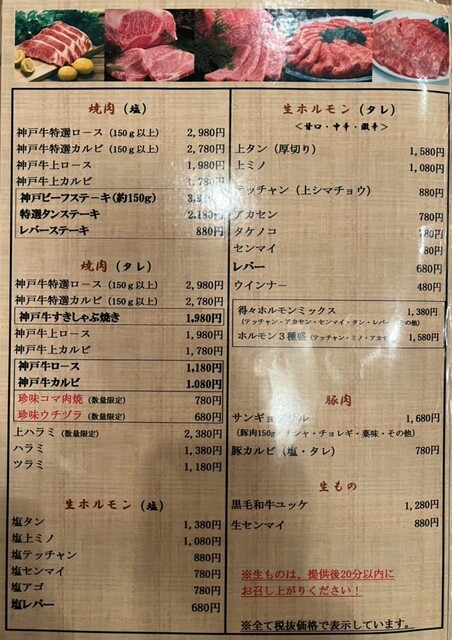 焼肉（塩）
神戸牛特選ロース（150ｇ以上） 2,980円
神戸牛特選カルビ（150ｇ以上） 2,780円
神戸牛上ロース 1,980円
神戸牛上カルビ 1,780円
神戸ビーフステーキ(約150g)
特選タンステーキ 2,180円
レバーステーキ 880円
焼肉（タレ）
神戸牛特選ロース（150ｇ以上） 2,980円
神戸牛特選カルビ（150ｇ以上） 2,780円
神戸牛すきしゃぶ焼き 1,980円
神戸牛上ロース 1,980円
神戸牛上カルビ 1,780円
神戸牛ロース 1,180円
神戸牛カルビ 1.080円
珍味コマ肉焼（数量限定） 780円
珍味ウチヅラ（数量限定） 680円
上ハラミ（数量限定） 2,380円
ハラミ 1,380円
ツラミ 1,180円
生ホルモン（塩）
塩タン 1,380円
塩上ミノ 1,080円
塩テッチャン 880円
塩センマイ 780円
塩アゴ 780円
塩レバー 680円
生ホルモン（タレ）
＜甘口・中辛・激辛＞
上タン（厚切り） 1,580円
上ミノ 1,080円
テッチャン（上シマチョウ） 880円
アカセン 780円
タケノコ 780円
センマイ 780円
レバー 680円
ウインナー 480円
得々ホルモンミックス 1,380円
（テッチャン・アカセン・センマイ・タン・レバ その他）
ホルモン３種盛（テッチャン・ミノ・アカセ 1,580円
豚肉
サンギョプサル 1,680円
（豚肉150g チシャ・チョレギ・薬味・その他）
豚カルビ（塩・タレ） 780円
生もの
黒毛和牛ユッケ 1,280円
生センマイ 880円
※生ものは、提供後20分以内に
お召し上がりください！
※全て税抜価格で表示しています。